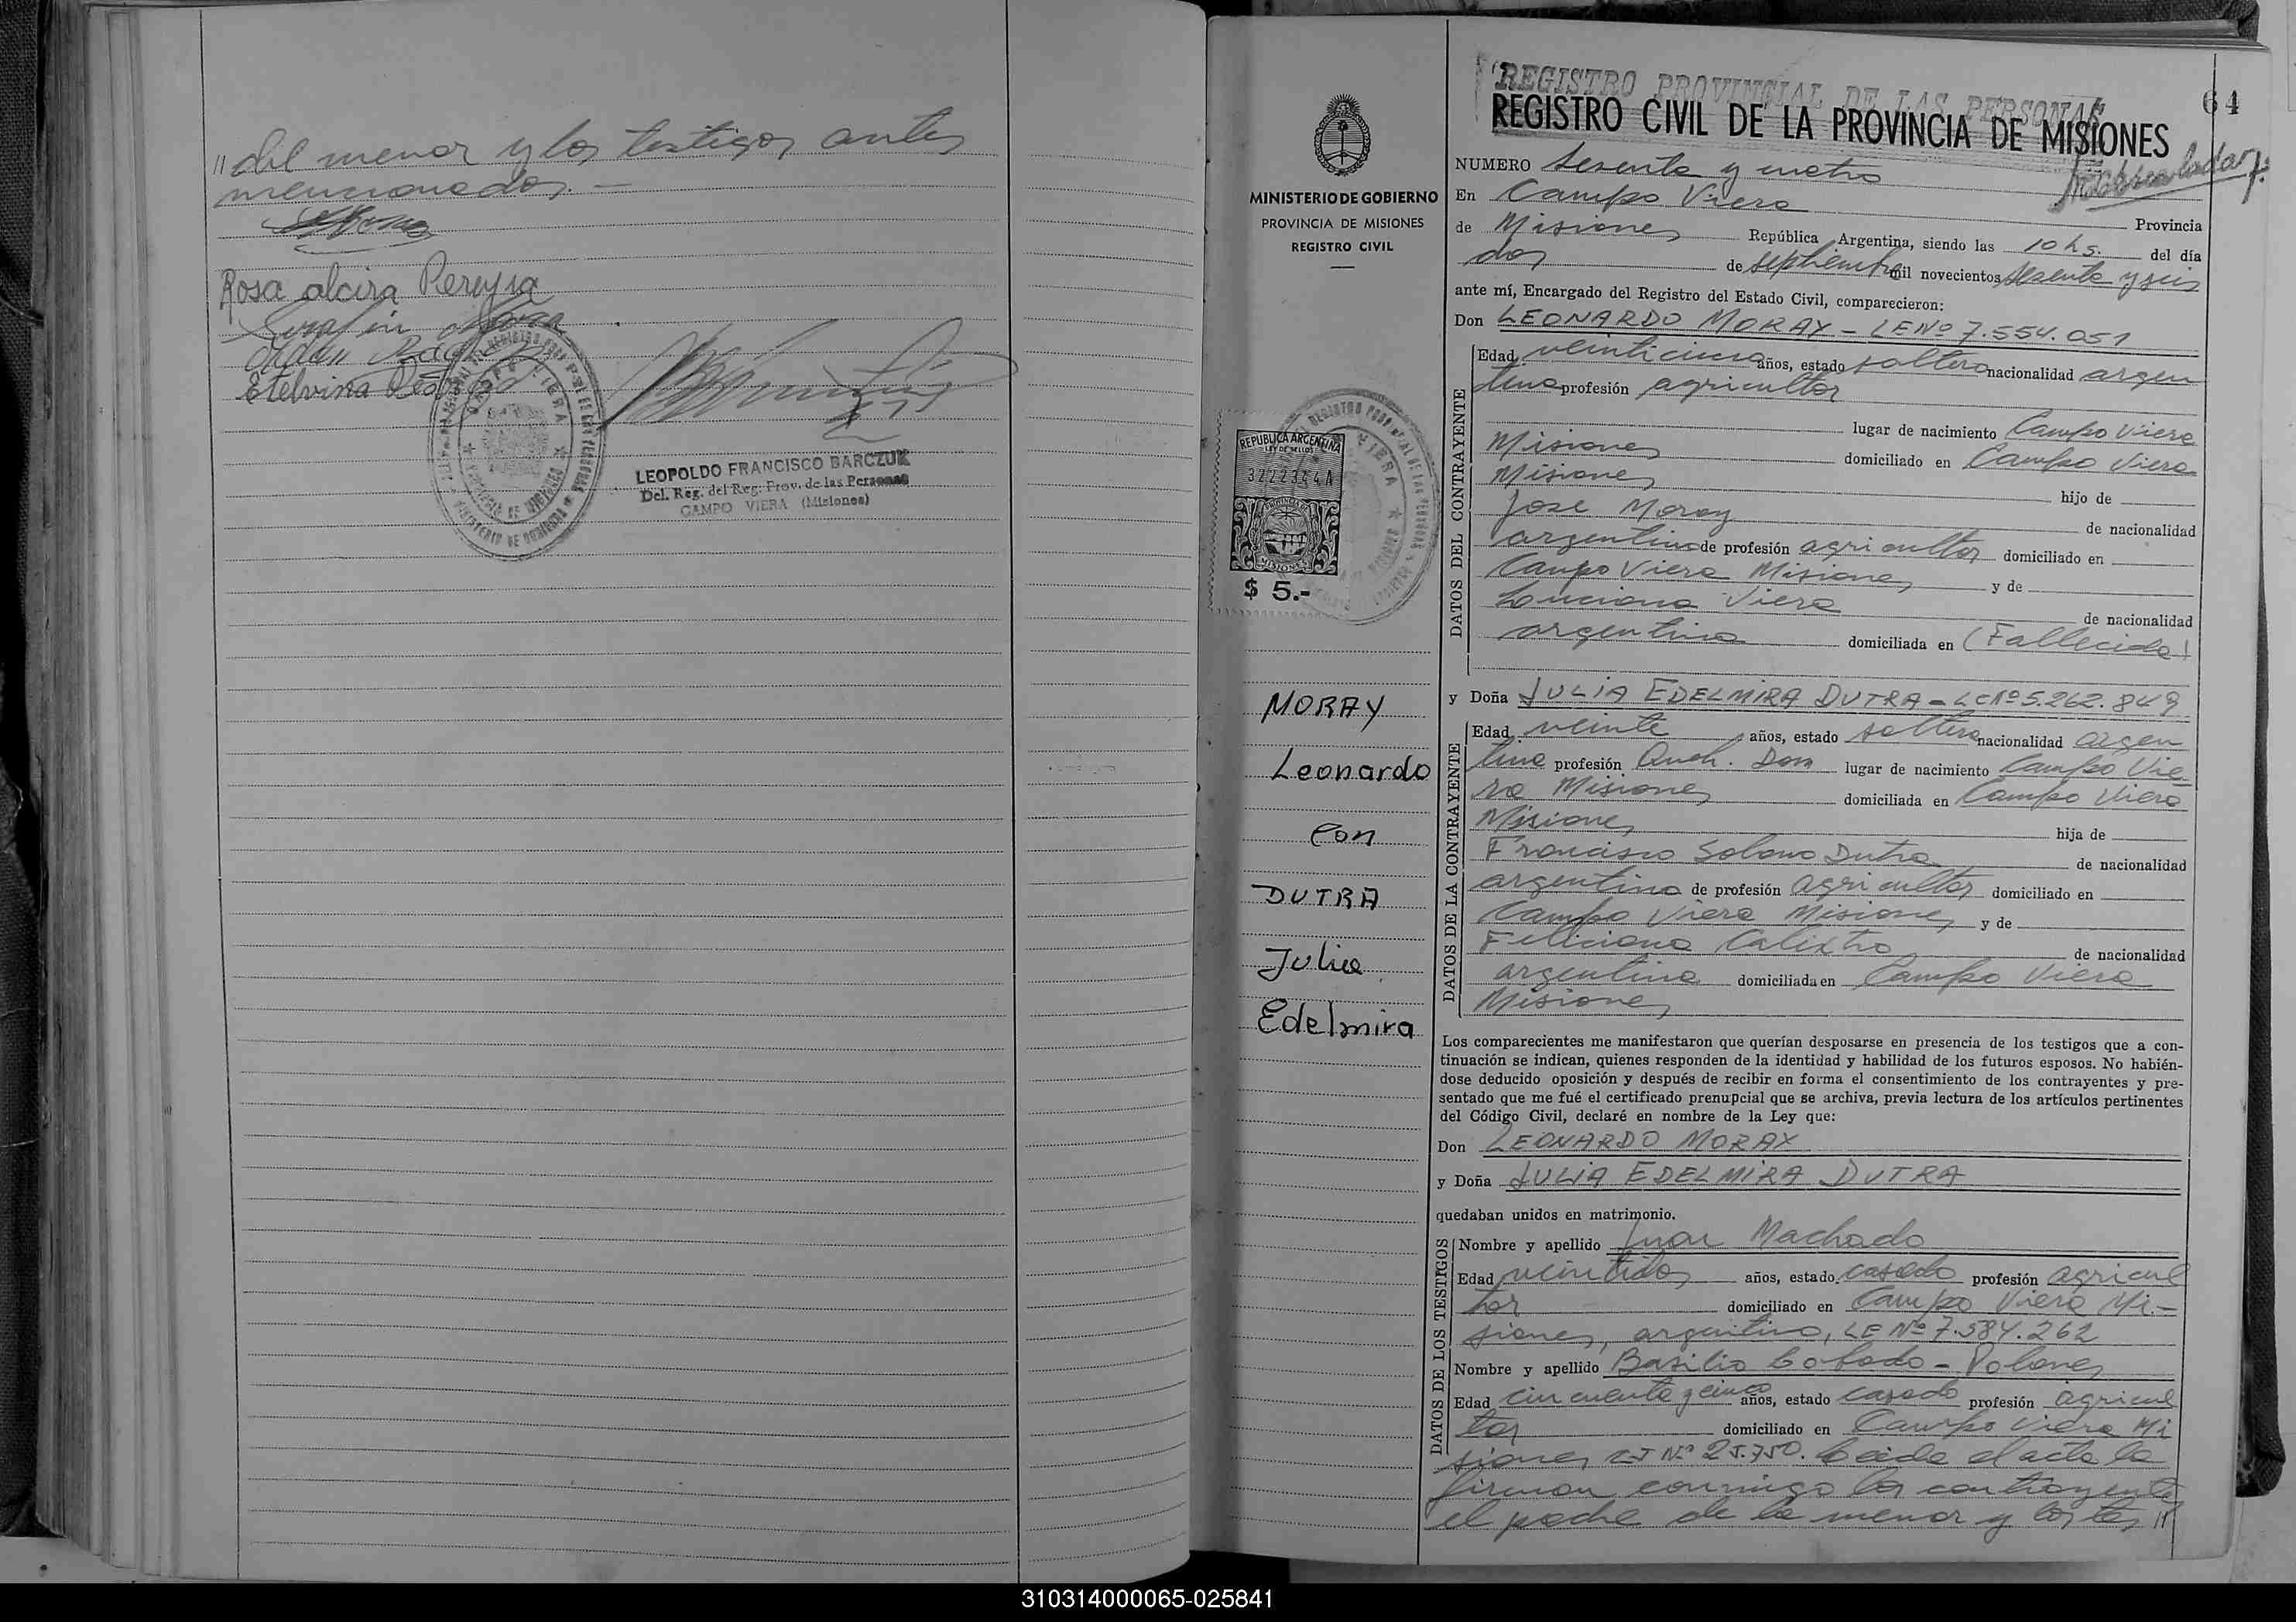 "del menor y los testigos antes
mencionados. —
Rosa alcira Pereyra
Serafin
Etelvina
LEOPOLDO FRANCISCO BARCZUK
Del. Reg. del Reg. Prov. de las Personas
CAMPO VIERA (Misiones)
MINISTERIO DE GOBIERNO
PROVINCIA DE MISIONES
REGISTRO CIVIL
REPUBLICA ARGENTINA
LEY DE SELLOS
MISIONES
$ 5.-
MORAY
Leonardo
Con
DUTRA
Julia
Edelmira
64
REGISTRO PROVINCIAL DE LAS PERSONAS
REGISTRO CIVIL DE LA PROVINCIA DE MISIONES
NUMERO Sesenta y cuatro
En Campo Viera Provincia
de Misiones República Argentina, siendo las 10 hs. del día
dos de septiembre mil novecientos sesenta y seis
ante mí, Encargado del Registro del Estado Civil, comparecieron:
Don LEONARDO MORAY - LE Nº 7.554.051
DATOS DEL CONTRAYENTE
Edad veinticinco años, estado soltero nacionalidad argen
tina profesión agricultor
lugar de nacimiento Campo Viera
Misiones domiciliado en Campo Viera
Misiones hijo de
Jose Moray de nacionalidad
argentina de profesión agricultor domiciliado en
Campo Viera Misiones y de
Luciana Viera de nacionalidad
argentina domiciliada en (Fallecida)
y Doña JULIA EDELMIRA DUTRA - LC Nº 5.262.849
DATOS DE LA CONTRAYENTE
Edad veinte años, estado soltera nacionalidad argen
tina profesión Queh. Dom lugar de nacimiento Campo Vie-
ra Misiones domiciliada en Campo Viera
Misiones hija de
Francisco Solano Dutra de nacionalidad
argentina de profesión agricultor domiciliado en
Campo Viera Misiones y de
Feliciana Calixtro de nacionalidad
argentina domiciliada en Campo Viera
Misiones
Los comparecientes me manifestaron que querían desposarse en presencia de los testigos que a con-
tinuación se indican, quienes responden de la identidad y habilidad de los futuros esposos. No habién-
dose deducido oposición y después de recibir en forma el consentimiento de los contrayentes y pre-
sentado que me fué el certificado prenupcial que se archiva, previa lectura de los artículos pertinentes
del Código Civil, declaré en nombre de la Ley que:
Don LEONARDO MORAY
y Doña JULIA EDELMIRA DUTRA
quedaban unidos en matrimonio.
DATOS DE LOS TESTIGOS
Nombre y apellido Juan Machado
Edad veintidos años, estado casado profesión agricul
tor domiciliado en Campo Viera Mi-
siones, argentino, LE Nº 7.584.262
Nombre y apellido Basilio
Edad cincuenta y cinco años, estado casado profesión agricul
tor domiciliado en Campo Viera Mi
siones Nº 25.750. Leida el acta la
firman conmigo los contrayentes
el padre de la menor y los tes "
310314000065-025841